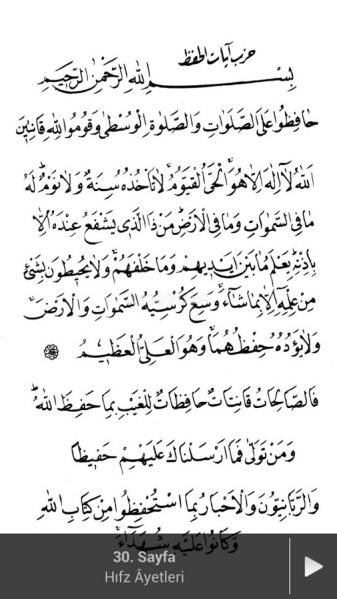 حزب آيات الحفظ
بِسْمِ اللهِ الرَّحْمٰنِ الرَّحِيمِ
حَافِظُوا عَلَى الصَّلَوَاتِ وَالصَّلٰوةِ الْوُسْطٰى وَقُومُوا لِلّٰهِ قَانِتِينَ
اَللّٰهُ لَآ اِلٰهَ اِلَّا هُوَ اَلْحَيُّ الْقَيُّومُ لَا تَأْخُذُهُ سِنَةٌ وَلَا نَوْمٌ لَهُ
مَا فِي السَّمٰوَاتِ وَمَا فِي الْاَرْضِ مَنْ ذَا الَّذِي يَشْفَعُ عِنْدَهُ اِلَّا
بِاِذْنِهِ يَعْلَمُ مَا بَيْنَ اَيْدِيهِمْ وَمَا خَلْفَهُمْ وَلَا يُحِيطُونَ بِشَيْءٍ
مِنْ عِلْمِهِ اِلَّا بِمَا شَآءَ وَسِعَ كُرْسِيُّهُ السَّمٰوَاتِ وَالْاَرْضَ
وَلَا يَؤُدُهُ حِفْظُهُمَا وَهُوَ الْعَلِيُّ الْعَظِيمُ
فَالصَّالِحَاتُ قَانِتَاتٌ حَافِظَاتٌ لِلْغَيْبِ بِمَا حَفِظَ اللهُ
وَمَنْ تَوَلّٰى فَمَا اَرْسَلْنَاكَ عَلَيْهِمْ حَفِيظًا
وَالرَّبَّانِيُّونَ وَالْاَحْبَارُ بِمَا اسْتُحْفِظُوا مِنْ كِتَابِ اللهِ
وَكَانُوا عَلَيْهِ شُهَدَآءَ
30. Sayfa
Hıfz Âyetleri